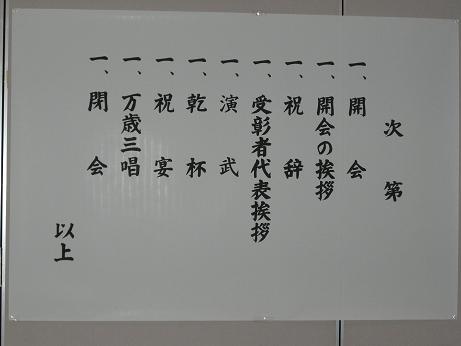 次第
一、開会
一、開会の挨拶
一、祝辞
一、受彰者代表挨拶
一、演武
一、乾杯
一、祝宴
一、万歳三唱
一、閉会
以上